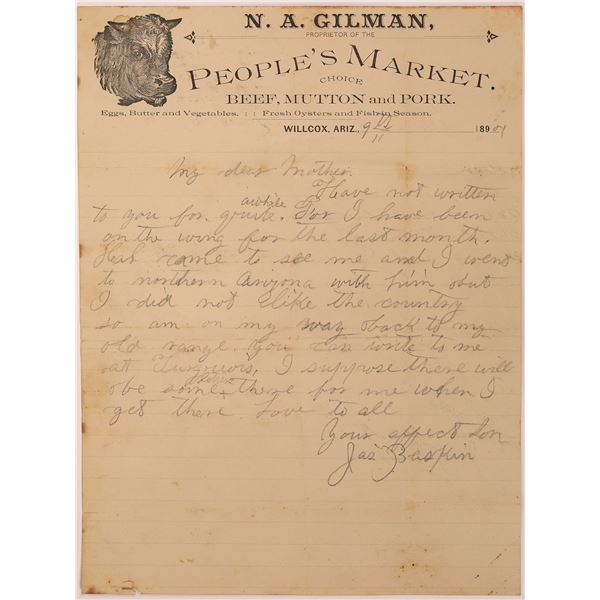 N. A. GILMAN,
PROPRIETOR OF THE
PEOPLE'S MARKET.
CHOICE
BEEF, MUTTON and PORK.
Eggs, Butter and Vegetables. : : Fresh Oysters and Fish in Season.
WILLCOX, ARIZ., 9 11 1890
My dear Mother.
Have not written
awhile
to you for quite. For I have been
on the wing for the last month.
came to see me and I went
to northern Arizona with him but
I did not like the country
so am on my way back to my
old range. You can write to me
att I suppose there will
be some there for me when I
get there Love to all
Your affect Son
Jas Baskin